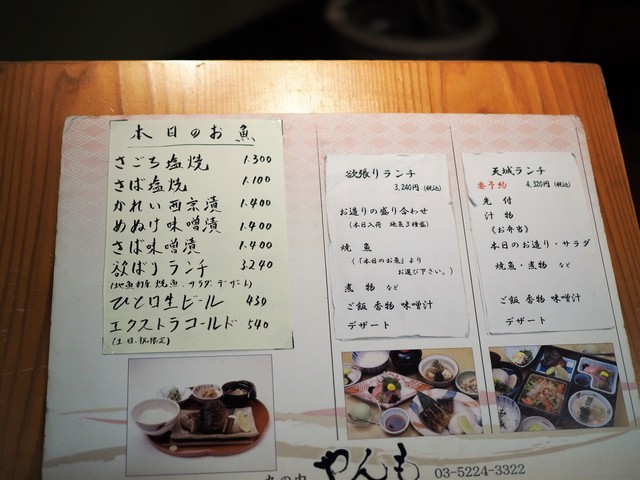 本日のお魚
さごち塩焼 1.300
さば塩焼 1.100
かれい西京漬 1.400
めぬけ味噌漬 1.400
さば味噌漬 1.400
欲ばりランチ 3.240
焼魚、サラダ、デザート)
ひと口生ビール 430
エクストラコールド 540
(土、日、祝限定)
欲張りランチ
3,240円(税込)
お造りの盛り合わせ
(本日入荷 地魚3種盛)
焼 魚
(「本日のお魚」より
お選び下さい。)
煮 物 など
ご飯 香物 味噌汁
デザート
天城ランチ
要予約 4,320円(税込)
先 付
汁 物
《お弁当》
本日のお造り・サラダ
焼魚・煮物 など
ご飯 香物 味噌汁
デザート
丸の内 やんも 03-5224-3322